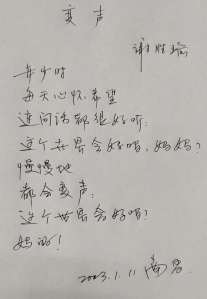 变声
谢胜瑜
年少时
每天心怀希望
连问话都很好听:
这个世界会好吗,妈妈?
慢慢地
都会变声:
这个世界会好吗?
妈的!
2023.1.11 南昌